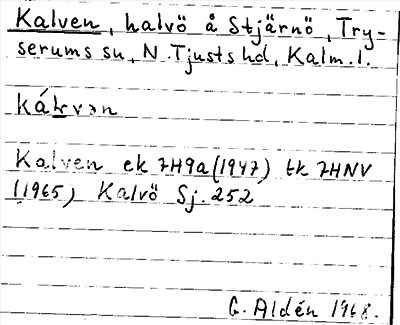 Kalven, halvö å Stjärnö, Try-
serums sn, N. Tjusts hd, Kalm. l.
kálvən
Kalven ek 7H9a (1947) tk 7HNV
(1965) Kalvö Sj. 252
G. Aldén 1968.